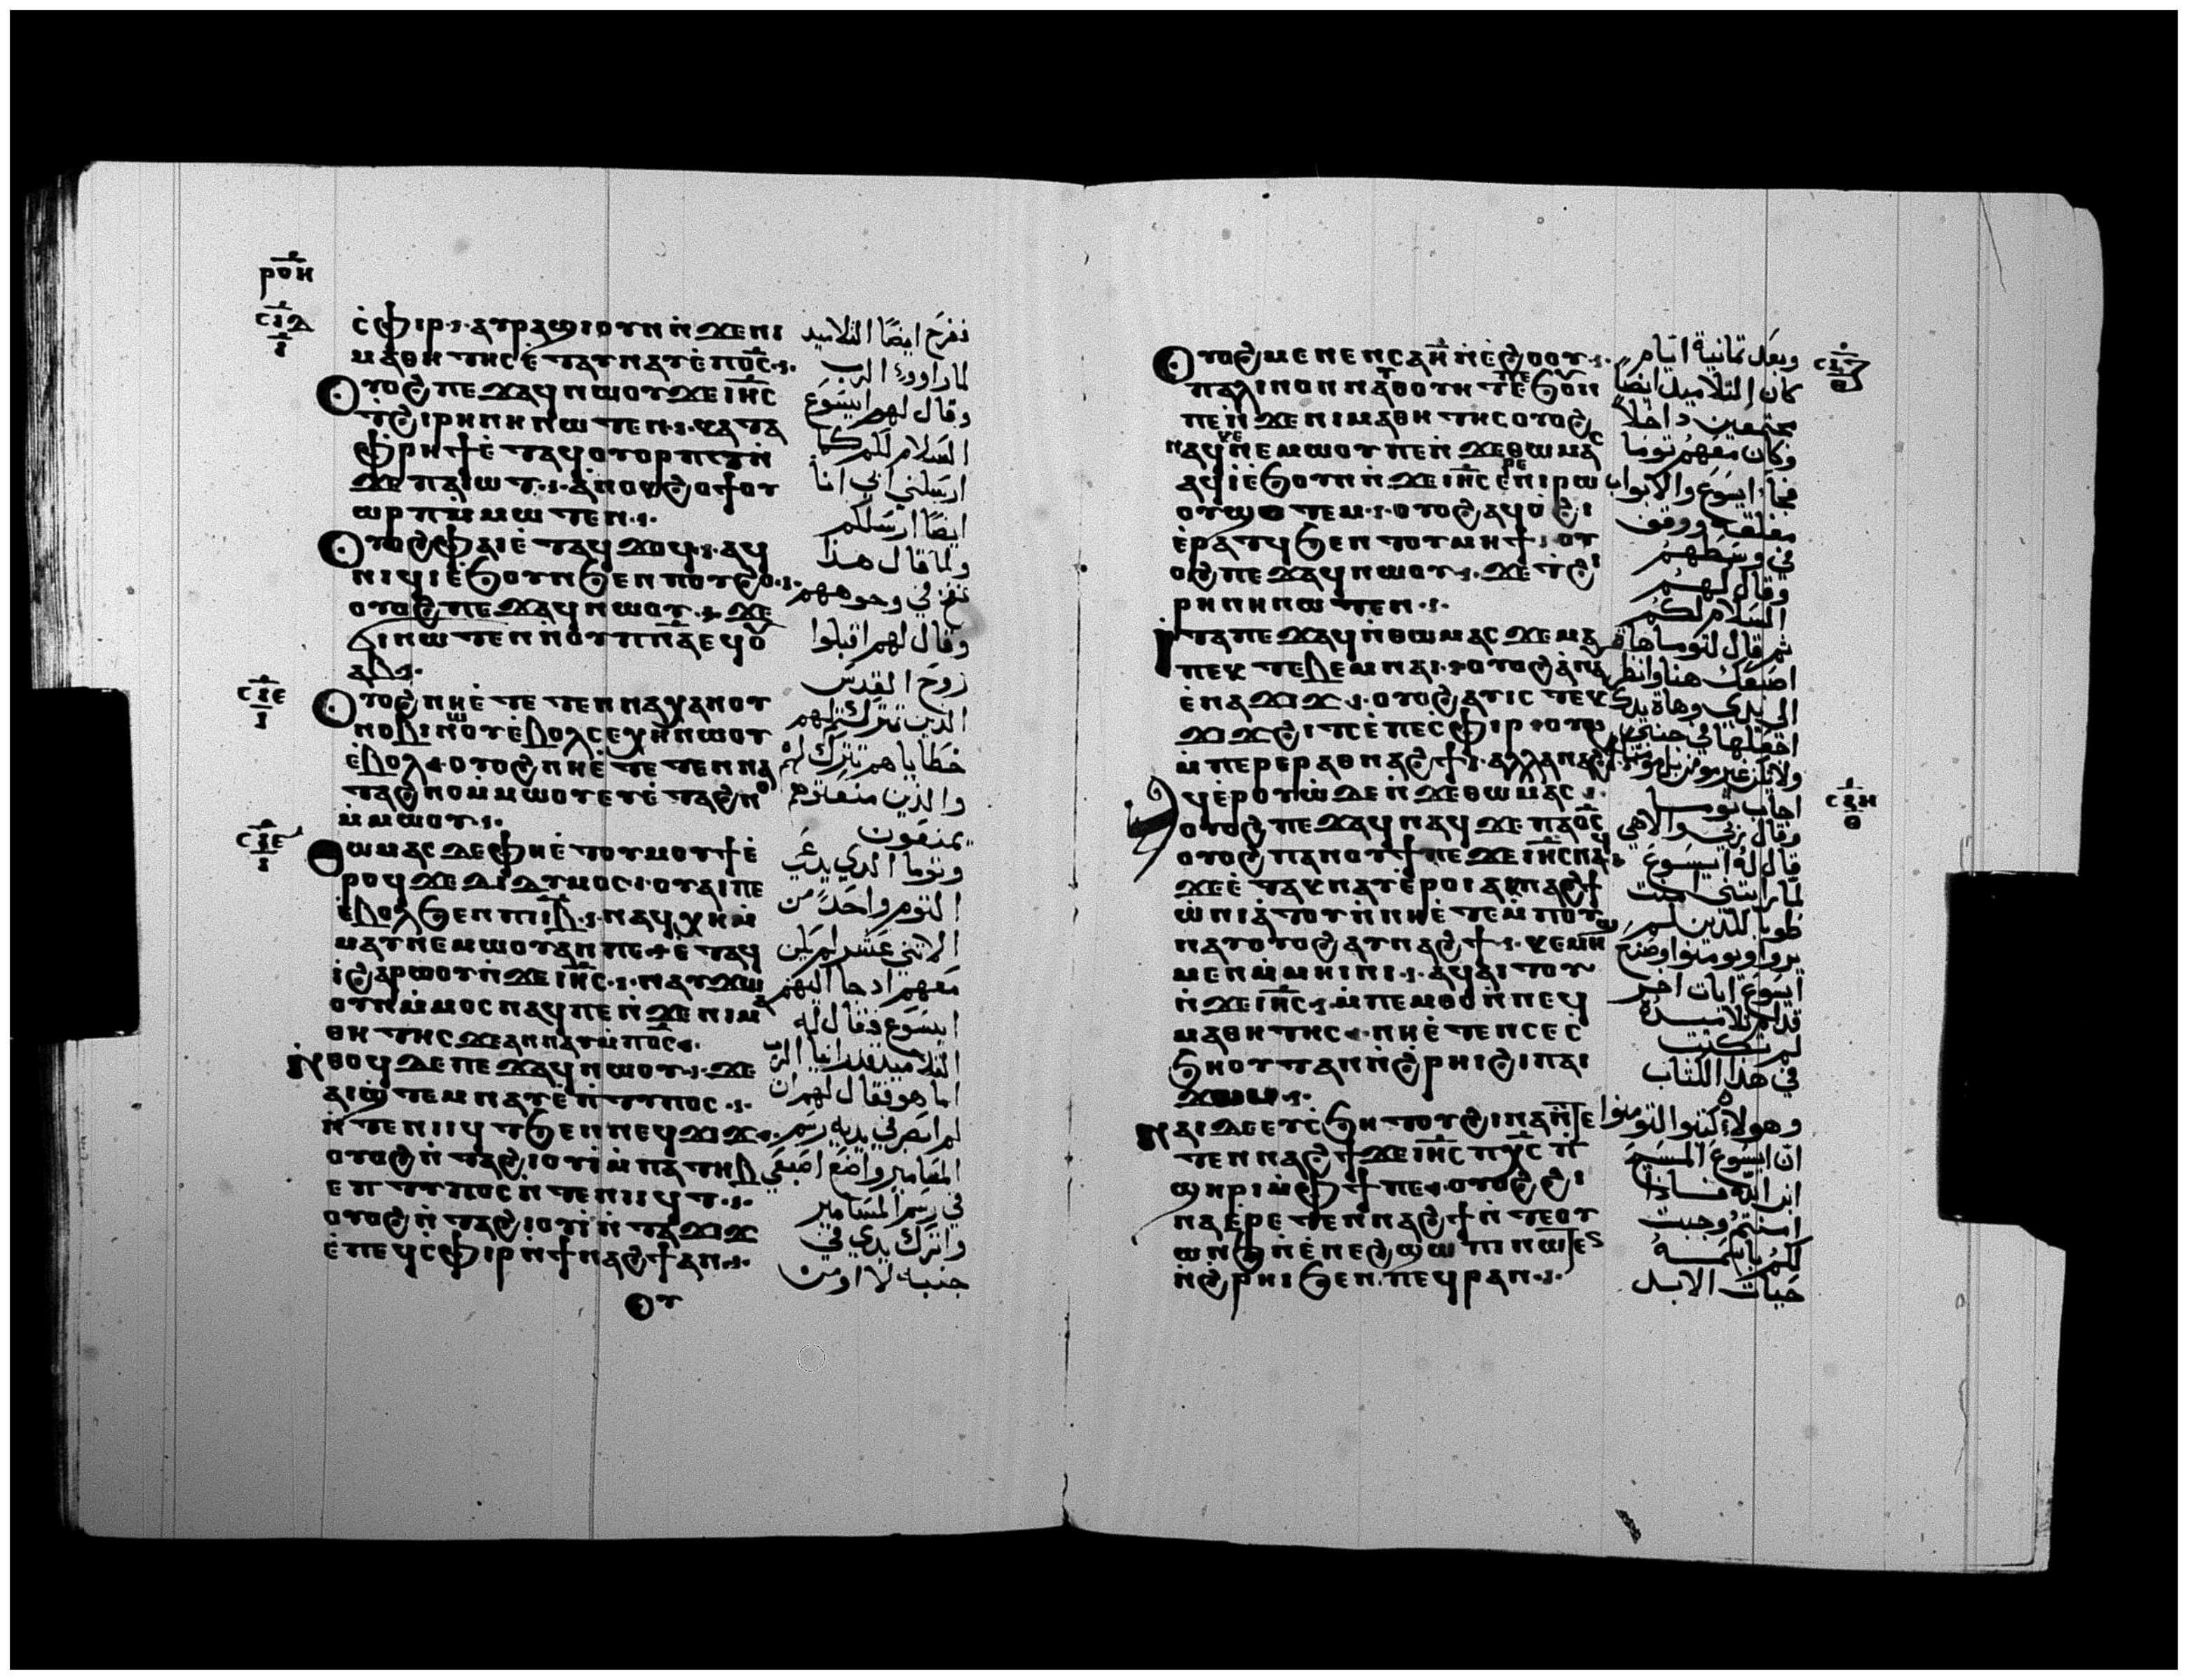 ⲣⲟⲏ
ⲥⲫⲓⲣ ⲁⲩⲣⲁϣⲓ ⲟⲩⲛ ⲛϫⲉⲛⲓ
ⲙⲁⲑⲏⲧⲏⲥ ⲉⲧⲁⲩⲛⲁⲩ ⲉⲡⲟⲥ
ⲟⲩⲟϩ ⲡⲉϫⲁϥ ⲛⲱⲟⲩ ϫⲉ ⲓⲏⲥ
ⲧϩⲓⲣⲏⲛⲏ ⲛⲱⲧⲉⲛ ⲕⲁⲧⲁ
ⲫⲣⲏϯ ⲉⲧⲁϥⲟⲩⲟⲣⲡⲧ ⲛ
ϫⲉ ⲡⲁⲓⲱⲧ ⲁⲛⲟⲕ ϩⲱ ϯⲟⲩ
ⲱⲣⲡ ⲙⲙⲱⲧⲉⲛ
ⲟⲩⲟϩ ⲫⲁⲓ ⲉⲧⲁϥϫⲟϥ ⲁϥ
ⲛⲓϥⲓ ⲉϧⲟⲩⲛ ϧⲉⲛ ⲡⲟⲩϩⲟ
ⲟⲩⲟϩ ⲡⲉϫⲁϥ ⲛⲱⲟⲩ ϫⲉ
ϭⲓ ⲛⲱⲧⲉⲛ ⲛⲟⲩⲡⲛⲁ ⲉϥⲟⲩ
ⲁⲃ
ⲟⲩⲟϩ ⲛⲏ ⲉⲧⲉⲧⲉⲛⲛⲁⲭⲁ ⲛⲟⲩ
ⲛⲟⲃⲓ ⲛⲱⲟⲩ ⲉⲃⲟⲗ ⲥⲉⲭⲏ ⲛⲱⲟⲩ
ⲉⲃⲟⲗ ⲟⲩⲟϩ ⲛⲏ ⲉⲧⲉⲧⲉⲛⲛⲁ
ⲧⲁϩⲛⲟ ⲙⲙⲱⲟⲩ ⲉⲩⲉⲧⲁϩⲛⲟ
ⲙⲙⲱⲟⲩ
ⲑⲱⲙⲁⲥ ⲇⲉ ⲫⲏ ⲉⲧⲟⲩⲙⲟⲩϯ ⲉ
ⲣⲟϥ ϫⲉ ⲇⲓⲇⲩⲙⲟⲥ ⲟⲩⲁⲓ ⲡⲉ
ⲉⲃⲟⲗ ϧⲉⲛ ⲡⲓⲓⲃ ⲛⲁϥⲭⲏ ⲙ
ⲙⲁⲩ ⲛⲉⲙⲱⲟⲩ ⲁⲛ ⲡⲉ ⲉⲧⲁϥ
ⲓ ϩⲁⲣⲱⲟⲩ ⲛϫⲉ ⲓⲏⲥ ⲛⲁⲩϫⲱ
ⲟⲩⲛ ⲙⲙⲟⲥ ⲛⲁϥ ⲡⲉ ⲛϫⲉⲛⲓⲙⲁ
ⲑⲏⲧⲏⲥ ϫⲉ ⲁⲛⲛⲁⲩ ⲙⲡⲟⲥ
ⲛⲑⲟϥ ⲇⲉ ⲡⲉϫⲁϥ ⲛⲱⲟⲩ ϫⲉ
ⲁⲓϣⲧⲉⲙⲛⲁⲩ ⲉⲛⲧⲩⲡⲟⲥ
ⲛⲧⲉ ⲛⲓⲓϥⲧ ϧⲉⲛ ⲛⲉϥϫⲓϫ
ⲟⲩⲟϩ ⲛⲧⲁϩⲓⲟⲩⲓ ⲙⲡⲁⲧⲏⲃ
ⲉⲛⲧⲩⲡⲟⲥ ⲛⲧⲉ ⲛⲓⲓϥⲧ
ⲟⲩⲟϩ ⲛⲧⲁϩⲓⲟⲩⲓ ⲛⲧⲁϫⲓϫ
ⲉⲡⲉϥⲥⲫⲓⲣ ⲛϯⲛⲁϩϯ ⲁⲛ
ⲟⲩ
ففرح ايضًا التلاميد
لما راووا الرب
وقال لهم ايسوع
السلام لكم كما
ارسلني ابي انا
ايضًا ارسلكم
ولما قال هذا
نفخ في وجوههم
وقال لهم اقبلوا
روح القدس
الدين تتركوا لهم
خطاياهم تترك لهم
والذين منعتوهم
يمنعون
وتوما الدي يدعى
التوم واحدًا من
الاثني عشر لم يكن
معهم ادجا اليهم
ايسوع فقال له
التلاميد قد راينا الرب
اما هو فقال لهم ان
لم ابصر في يديه رسم
المسامير واضع اصبعي
في رسم المسامير
واترك يدي في
جنبه لا اومن
ⲟⲩⲟϩ ⲙⲉⲛⲉⲛⲥⲁ ⲏ ⲛⲉϩⲟⲟⲩ
ⲡⲁⲗⲓⲛ ⲟⲛ ⲛⲁⲩⲑⲟⲩⲏⲧ ⲡⲉ ϧⲟⲩⲛ
ⲡⲉ ⲛϫⲉ ⲛⲓⲙⲁⲑⲏⲧⲏⲥ ⲟⲩⲟϩ
ⲛⲁϥⲕⲉⲛⲉⲙⲱⲟⲩ ⲡⲉ ⲛϫⲉ ⲑⲱⲙⲁⲥ
ⲁϥⲓ ⲉϧⲟⲩⲛ ⲛϫⲉ ⲓⲏⲥ ⲉⲣⲉ ⲛⲓⲣⲱ
ⲟⲩ ϣⲟⲧⲉⲙ ⲟⲩⲟϩ ⲁϥⲟϩⲓ
ⲉⲣⲁⲧϥ ϧⲉⲛ ⲧⲟⲩⲙⲏϯ ⲟⲩ
ⲟϩ ⲡⲉϫⲁϥ ⲛⲱⲟⲩ ϫⲉ ⲧϩⲓ
ⲣⲏⲛⲏ ⲛⲱⲧⲉⲛ
ⲓⲧⲁ ⲡⲉϫⲁϥ ⲛⲑⲱⲙⲁⲥ ϫⲉ ⲙⲁ
ⲡⲉⲕⲧⲉⲃ ⲉⲙⲛⲁⲓ ⲟⲩⲟϩ ⲁⲛⲁⲩ
ⲉⲛⲁϫⲓϫ ⲟⲩⲟϩ ⲁⲩⲓⲥ ⲧⲉⲕ
ϫⲓϫ ϩⲓⲧⲥ ⲉⲡⲉⲥⲫⲓⲣ ⲟⲩⲟϩ
ⲙⲡⲉⲣⲉⲣ ⲁⲑⲛⲁϩϯ ⲁⲗⲗⲁ ⲛⲁϩϯ
ⲁϥⲉⲣⲟⲩⲱ ⲇⲉ ⲛϫⲉ ⲑⲱⲙⲁⲥ
ⲟⲩⲟϩ ⲡⲉϫⲁϥ ⲛⲁϥ ϫⲉ ⲡⲁⲟⲥ
ⲟⲩⲟϩ ⲡⲁⲛⲟⲩϯ ⲡⲉϫⲉ ⲓⲏⲥ ⲛⲁϥ
ϫⲉ ⲉⲧⲁⲕⲛⲁⲩ ⲉⲣⲟⲓ ⲁⲕⲛⲁϩϯ
ⲱⲟⲩⲛⲓⲁⲧⲟⲩ ⲛⲛⲏ ⲉⲧⲉⲙⲡⲟⲩ
ⲛⲁⲩ ⲟⲩⲟϩ ⲁⲩⲛⲁϩϯ ⲕⲉⲙⲏϣ
ⲙⲉⲛ ⲙⲙⲏⲓⲛⲓ ⲁϥⲁⲓⲧⲟⲩ
ⲛϫⲉ ⲓⲏⲥ ⲙⲡⲉⲙⲑⲟ ⲛⲛⲉϥ
ⲙⲁⲑⲏⲧⲏⲥ ⲛⲏ ⲉⲧⲉ ⲛⲥⲉⲥ
ϧⲏⲟⲩⲧ ⲁⲛ ⲛϩⲣⲏⲓ ϩⲓ ⲡⲁⲓ
ϫⲱⲙ
ⲛⲁⲓ ⲇⲉ ⲉⲧⲥϧⲏⲟⲩⲧ ϩⲓⲛⲁ ⲛⲧⲉ
ⲧⲉⲛⲛⲁϩϯ ϫⲉ ⲓⲏⲥ ⲡⲭⲥ ⲡ
ϣⲏⲣⲓ ⲙⲫϯ ⲡⲉ ⲟⲩⲟϩ ϩⲓ
ⲛⲁ ⲉⲣⲉⲧⲉⲛⲛⲁϩϯ ⲛⲧⲉ ⲟⲩ
ⲱⲛϧ ⲛⲉⲛⲉϩ ϣⲱⲡⲓ ⲛⲱⲧⲉⲛ
ⲛϩⲣⲏⲓ ϧⲉⲛ ⲡⲉϥⲣⲁⲛ
وبعد تمانية ايام
كان التلاميد ايضًا
مجتمعين داخلا
وكان معهم توما
فجاء ايسوع والابواب
مغلقه ووقف
في وسطهم
وقال لهم
السلام لكم
ثم قال لتوما هات
اصبعك هنا وانظر
الى يدي وهات يدك
اجعلها في جنبي
ولا تكن غير مومن بل مومنا
اجاب توما
وقال ربي والاهي
قال له ايسوع
لما رايتني امنت
طوبا للذين لم
يروا ويومنوا وصنع
ايسوع ايات اخر
قدام تلاميده
لم تكتب
في هذا الكتاب
وهولاء كتبوا لتومنوا
ان ايسوع المسيح
ابن الله فادا
امنتم وجبت
لكم باسمه
حيات الابد